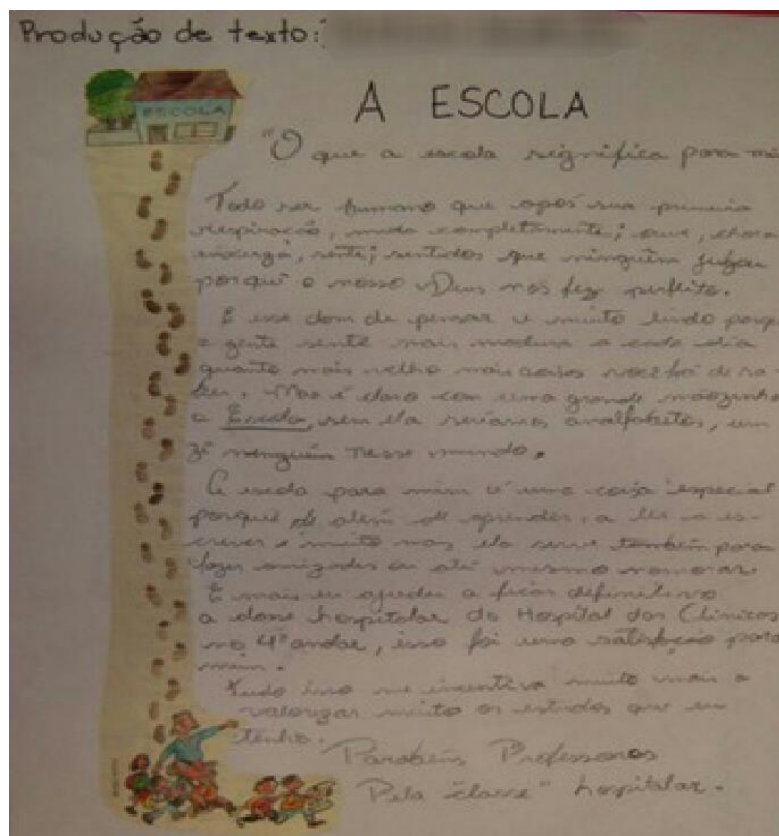 Produção de texto:
ESCOLA
A ESCOLA
"O que a escola significa para mi
Todo ser humano que após sua primeira
respiração, muda completamente; ouve, chora
enxerga, sente; sentidos que ninguém julgou
porque o nosso Deus nos fez perfeito.
E esse dom de pensar é muito lindo porqu
a gente sente mais madura a cada dia
quanto mais velho mais coisas você há de sa-
ber. Mas é claro com uma grande mãozinha
a Escola, sem ela seríamos analfabetos, um
zé ninguém nesse mundo.
A escola para mim é uma coisa especial
porque além de aprender, a ler a es-
crever e muito mas ela serve também para
fazer amizades ou até mesmo namorar.
E mais eu ajudei a ficar definitivo
a classe hospitalar do Hospital das Clinicas
no 4º andar, isso foi uma satisfação para
mim.
Tudo isso me incentiva muito mais a
valorizar muito os estudos que eu
tenho.
Parabéns Professoras
Pela "classe" hospitalar.